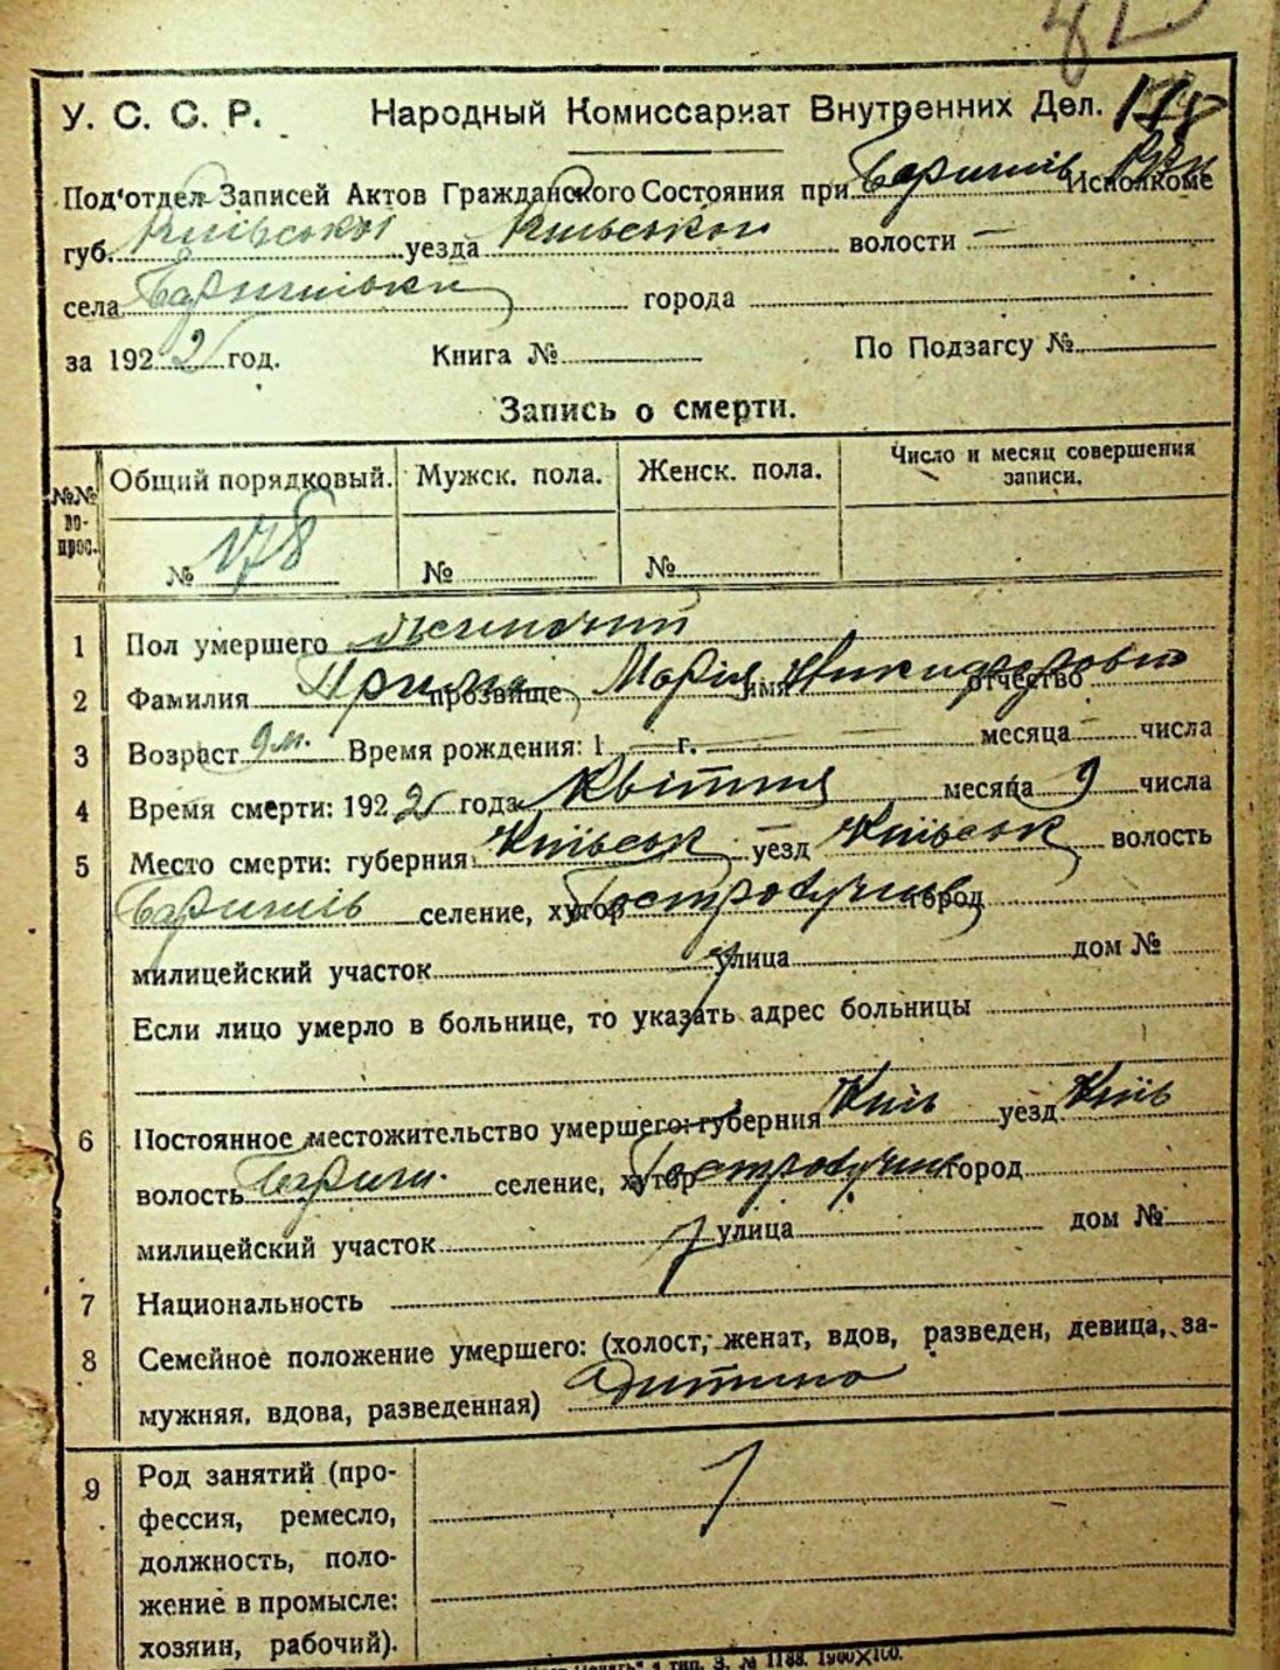 У. С. С. Р. Народный Комиссариат Внутренних Дел. 178
Под'отдел Записей Актов Гражданского Состояния при Баришів Исполкоме
губ. Київської уезда Київської волости —
села Баришівки города
за 1922 год. Книга № По Подзагсу №
Запись о смерти.
№№ во-прос. Общий порядковый. Мужск. пола. Женск. пола. Число и месяц совершения записи.
№ 178 № №
1 Пол умершего жіночий
2 Фамилия прозвище Марія имя Никифоровна отчество
3 Возраст 9 м. Время рождения: 1 — г. — месяца — числа
4 Время смерти: 1922 года Квітня месяца 9 числа
5 Место смерти: губерния Київськ уезд Київськ волость
Баришів селение, хутор Гостролуччя город
милицейский участок улица дом №
Если лицо умерло в больнице, то указать адрес больницы
6 Постоянное местожительство умершего: губерния Київ уезд Київ
волость Бариш. селение, хутор город
милицейский участок улица дом №
7 Национальность
8 Семейное положение умершего: (холост, женат, вдов, разведен, девица, за-
мужняя, вдова, разведенная) дитина
9 Род занятий (про-
фессия, ремесло,
должность, поло-
жение в промысле:
хозяин, рабочий).
тип. 3. № 1188. 1900×100.